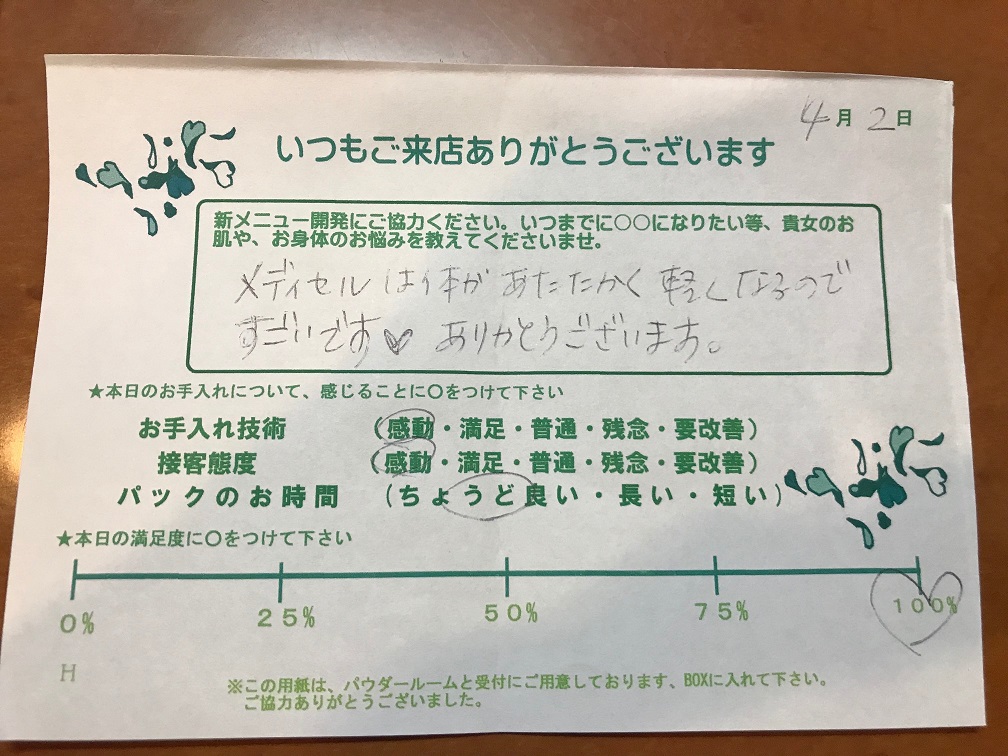 4月2日
いつもご来店ありがとうございます
新メニュー開発にご協力ください。いつまでに○○になりたい等、貴女のお
肌や、お身体のお悩みを教えてくださいませ。
メディセルは体があたたかく軽くなるので
すごいです♡ ありがとうございます。
★本日のお手入れについて、感じることに○をつけて下さい
お手入れ技術 (感動・満足・普通・残念・要改善)
接客態度 (感動・満足・普通・残念・要改善)
パックのお時間 (ちょうど良い・長い・短い)
★本日の満足度に○をつけて下さい
0% 25% 50% 75% 100%
H
※この用紙は、パウダールームと受付にご用意しております、BOXに入れて下さい。
ご協力ありがとうございました。